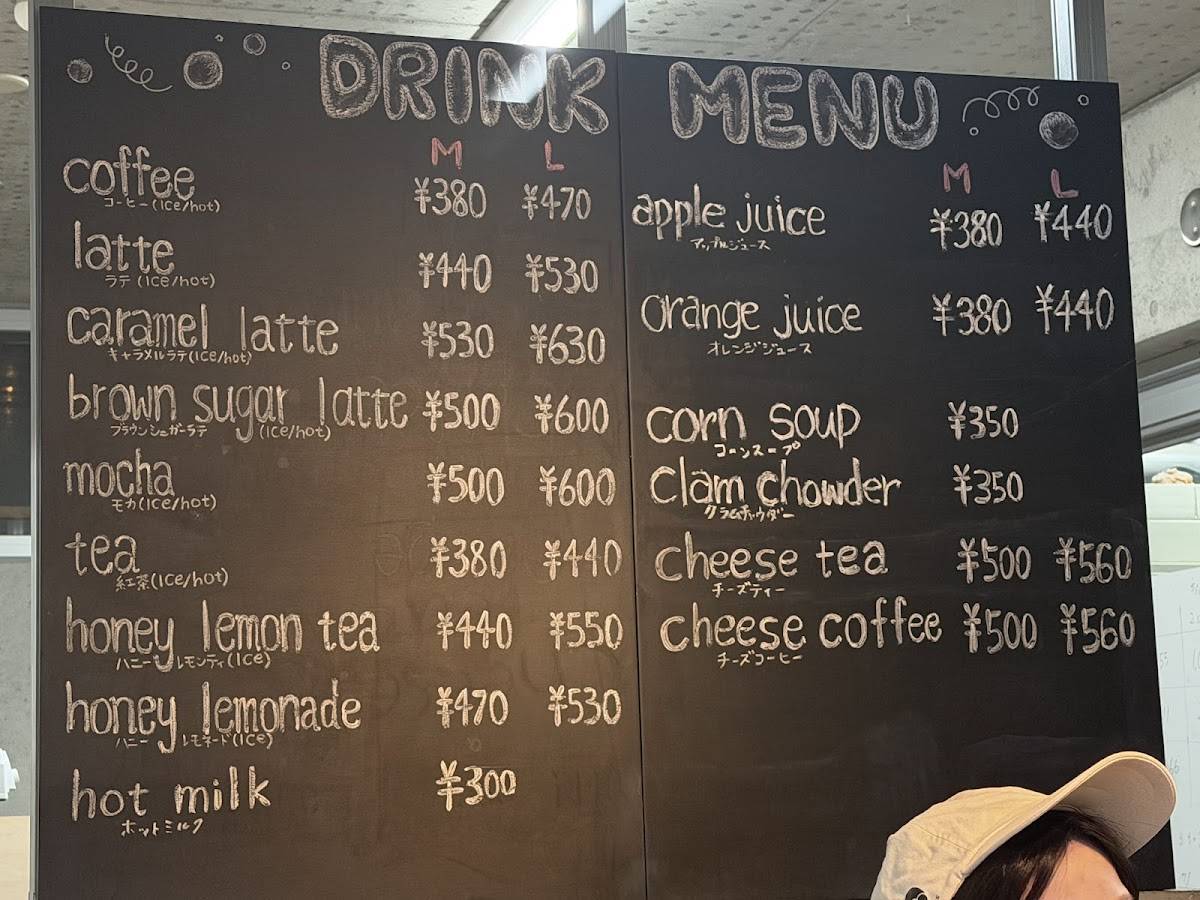 DRINK MENU
M L
coffee ¥380 ¥470
コーヒー(Ice/hot)
latte ¥440 ¥530
ラテ(Ice/hot)
caramel latte ¥530 ¥630
キャラメルラテ(Ice/hot)
brown sugar latte ¥500 ¥600
ブラウンシュガーラテ (Ice/hot)
mocha ¥500 ¥600
モカ(Ice/hot)
tea ¥380 ¥440
紅茶(Ice/hot)
honey lemon tea ¥440 ¥550
ハニーレモンティ(Ice)
honey lemonade ¥470 ¥530
ハニーレモネード(Ice)
hot milk ¥300
ホットミルク
M L
apple juice ¥380 ¥440
アップルジュース
orange juice ¥380 ¥440
オレンジジュース
corn soup ¥350
コーンスープ
Clam chowder ¥350
クラムチャウダー
cheese tea ¥500 ¥560
チーズティー
cheese coffee ¥500 ¥560
チーズコーヒー